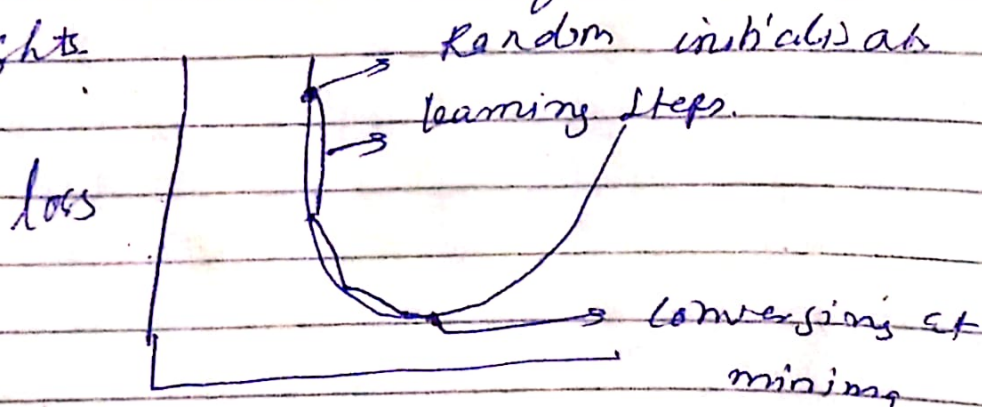 ghts
Random initialisah
learning steps.
loss
Converging at
minima